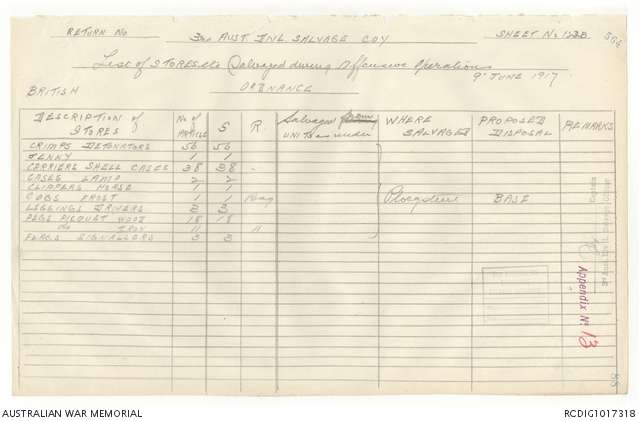 RETURN No 3rd AUST. INF. SALVAGE COY SHEET No. 123B
List of STORES etc Salvaged during Offensive Operations
9th JUNE 1917.
BRITISH ORDNANCE
DESCRIPTION of STORES No of ARTICLE S. R. Salvaged from UNITS as under WHERE SALVAGED PROPOSED DISPOSAL REMARKS
CRIMPS DETONATORS 56 56
JENNY 1 1
CARRIERS SHELL CASES 38 38 -
CASES LAMP 2 2
CLIPPERS HORSE 1 1
COGS FROST 1 1 Bag Ploegsteert BASE
LEGGINGS DRIVERS 3 3
PEGS PICQUET WOOD 18 18
do IRON 11 11
FLAGS SIGNALLERS 3 3
Captain
Appendix No. 13
88
AUSTRALIAN WAR MEMORIAL RCDIG1017318